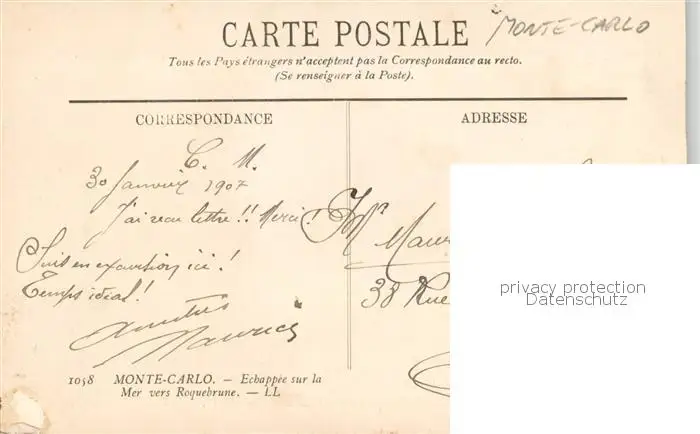 CARTE POSTALE
MONTE-CARLO
Tous les Pays étrangers n'acceptent pas la Correspondance au recto.
(Se renseigner à la Poste).
CORRESPONDANCE
ADRESSE
C. M.
30 Janvier 1907
J'ai reçu lettre!! Merci!
Suis en excursion ici!
Temps idéal!
Amitiés
Maurice
Mr
38 Rue
privacy protection
Datenschutz
1058 MONTE-CARLO. — Echappée sur la
Mer vers Roquebrune. — LL